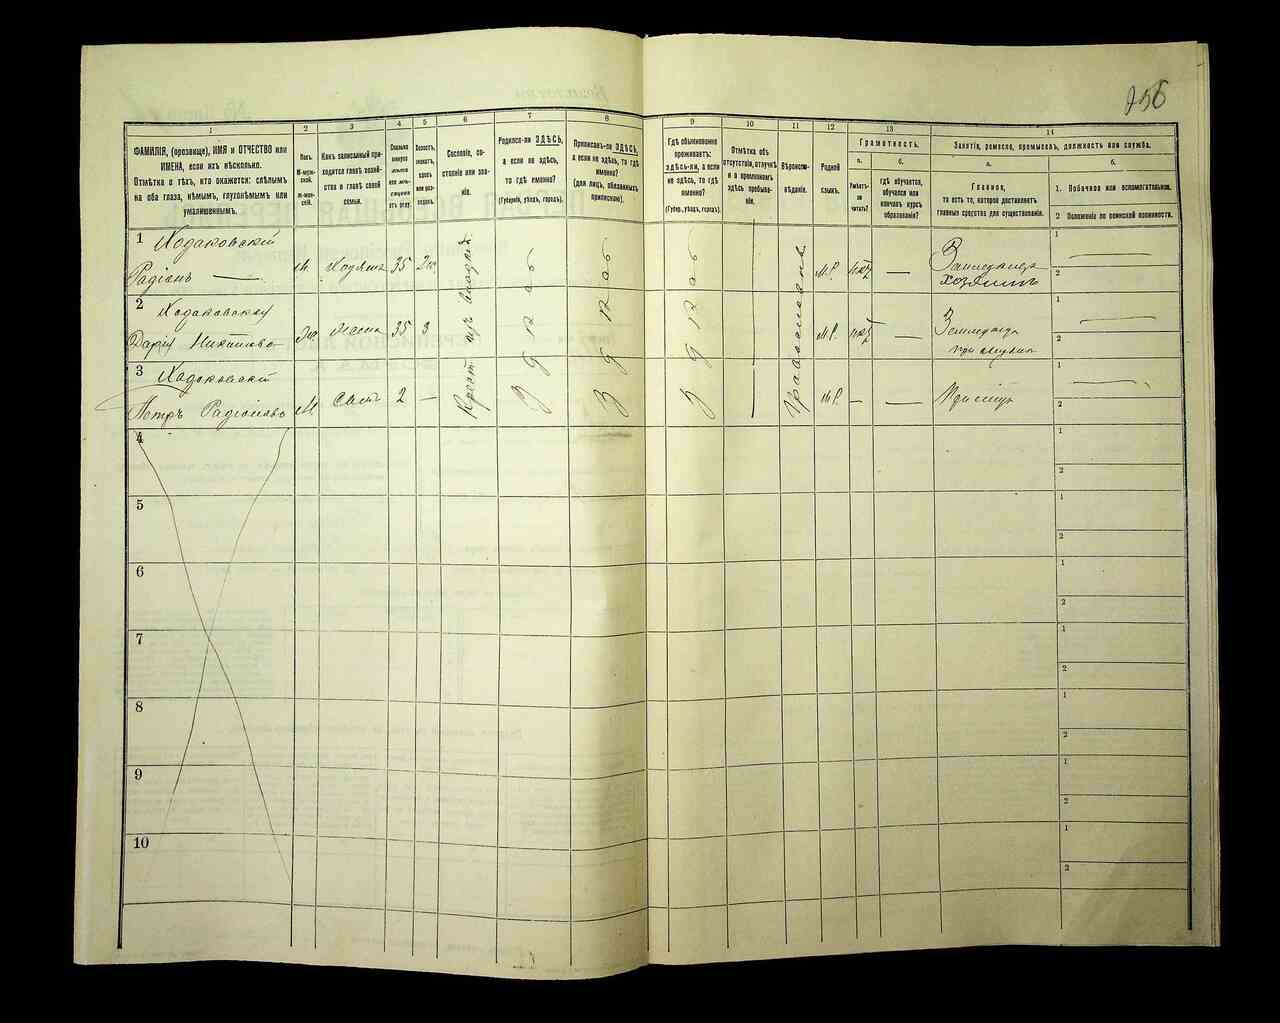 256
1
2
3
4
5
6
7
8
9
10
11
12
13
14
ФАМИЛІЯ, (прозвище), ИМЯ и ОТЧЕСТВО или
ИМЕНА, если ихъ нѣсколько.
Отмѣтка о тѣхъ, кто окажется: слѣпымъ
на оба глаза, нѣмымъ, глухонѣмымъ или
умалишеннымъ.
Полъ.
М-муж-
ской.
Ж-жен-
скій.
Какъ записанный при-
ходится главѣ хозяй-
ства и главѣ своей
семьи.
Сколько
минуло
лѣтъ
или мѣ-
сяцевъ
отъ роду.
Холостъ,
женатъ,
вдовъ
или раз-
веденъ.
Сословіе, со-
стояніе или зва-
ніе.
Родился-ли ЗДѢСЬ,
а если не здѣсь,
то гдѣ именно?
(Губернія, уѣздъ, городъ).
Приписанъ-ли ЗДѢСЬ,
а если не здѣсь, то гдѣ
именно?
(для лицъ, обязанныхъ
припискою).
Гдѣ обыкновенно
проживаетъ:
ЗДѢСЬ-ЛИ, а если
не здѣсь, то гдѣ
именно?
(Губерн., уѣздъ, городъ).
Отмѣтка объ
отсутствіи, отлучкѣ
и о временномъ
здѣсь пребыва-
ніи.
Вѣроиспо-
вѣданіе.
Родной
языкъ.
Грамотность.
а.
б.
Умѣетъ-
ли
читать?
гдѣ обучается,
обучался или
кончилъ курсъ
образованія?
Занятіе, ремесло, промыселъ, должность или служба.
а.
б.
Главное,
то есть то, которое доставляетъ
главныя средства для существованія.
1. Побочное или вспомогательное.
2 Положеніе по воинской повинности.
1 Ходаковскій
Радіонъ —
М. 35
М.Р. нѣтъ —
хозяинъ
1 —
2
2 Ходаковская
Дарія
Жена 35 3
М.Р. нѣтъ —
1 —
2
3 Ходаковскій
Петръ Радіоновъ
М Сынъ 2 —
М.Р. — —
1 —
2
Крест. изъ
Здѣсь
Здѣсь
Здѣсь
Православн.
4
1
2
5
1
2
6
1
2
7
1
2
8
1
2
9
1
2
10
1
2